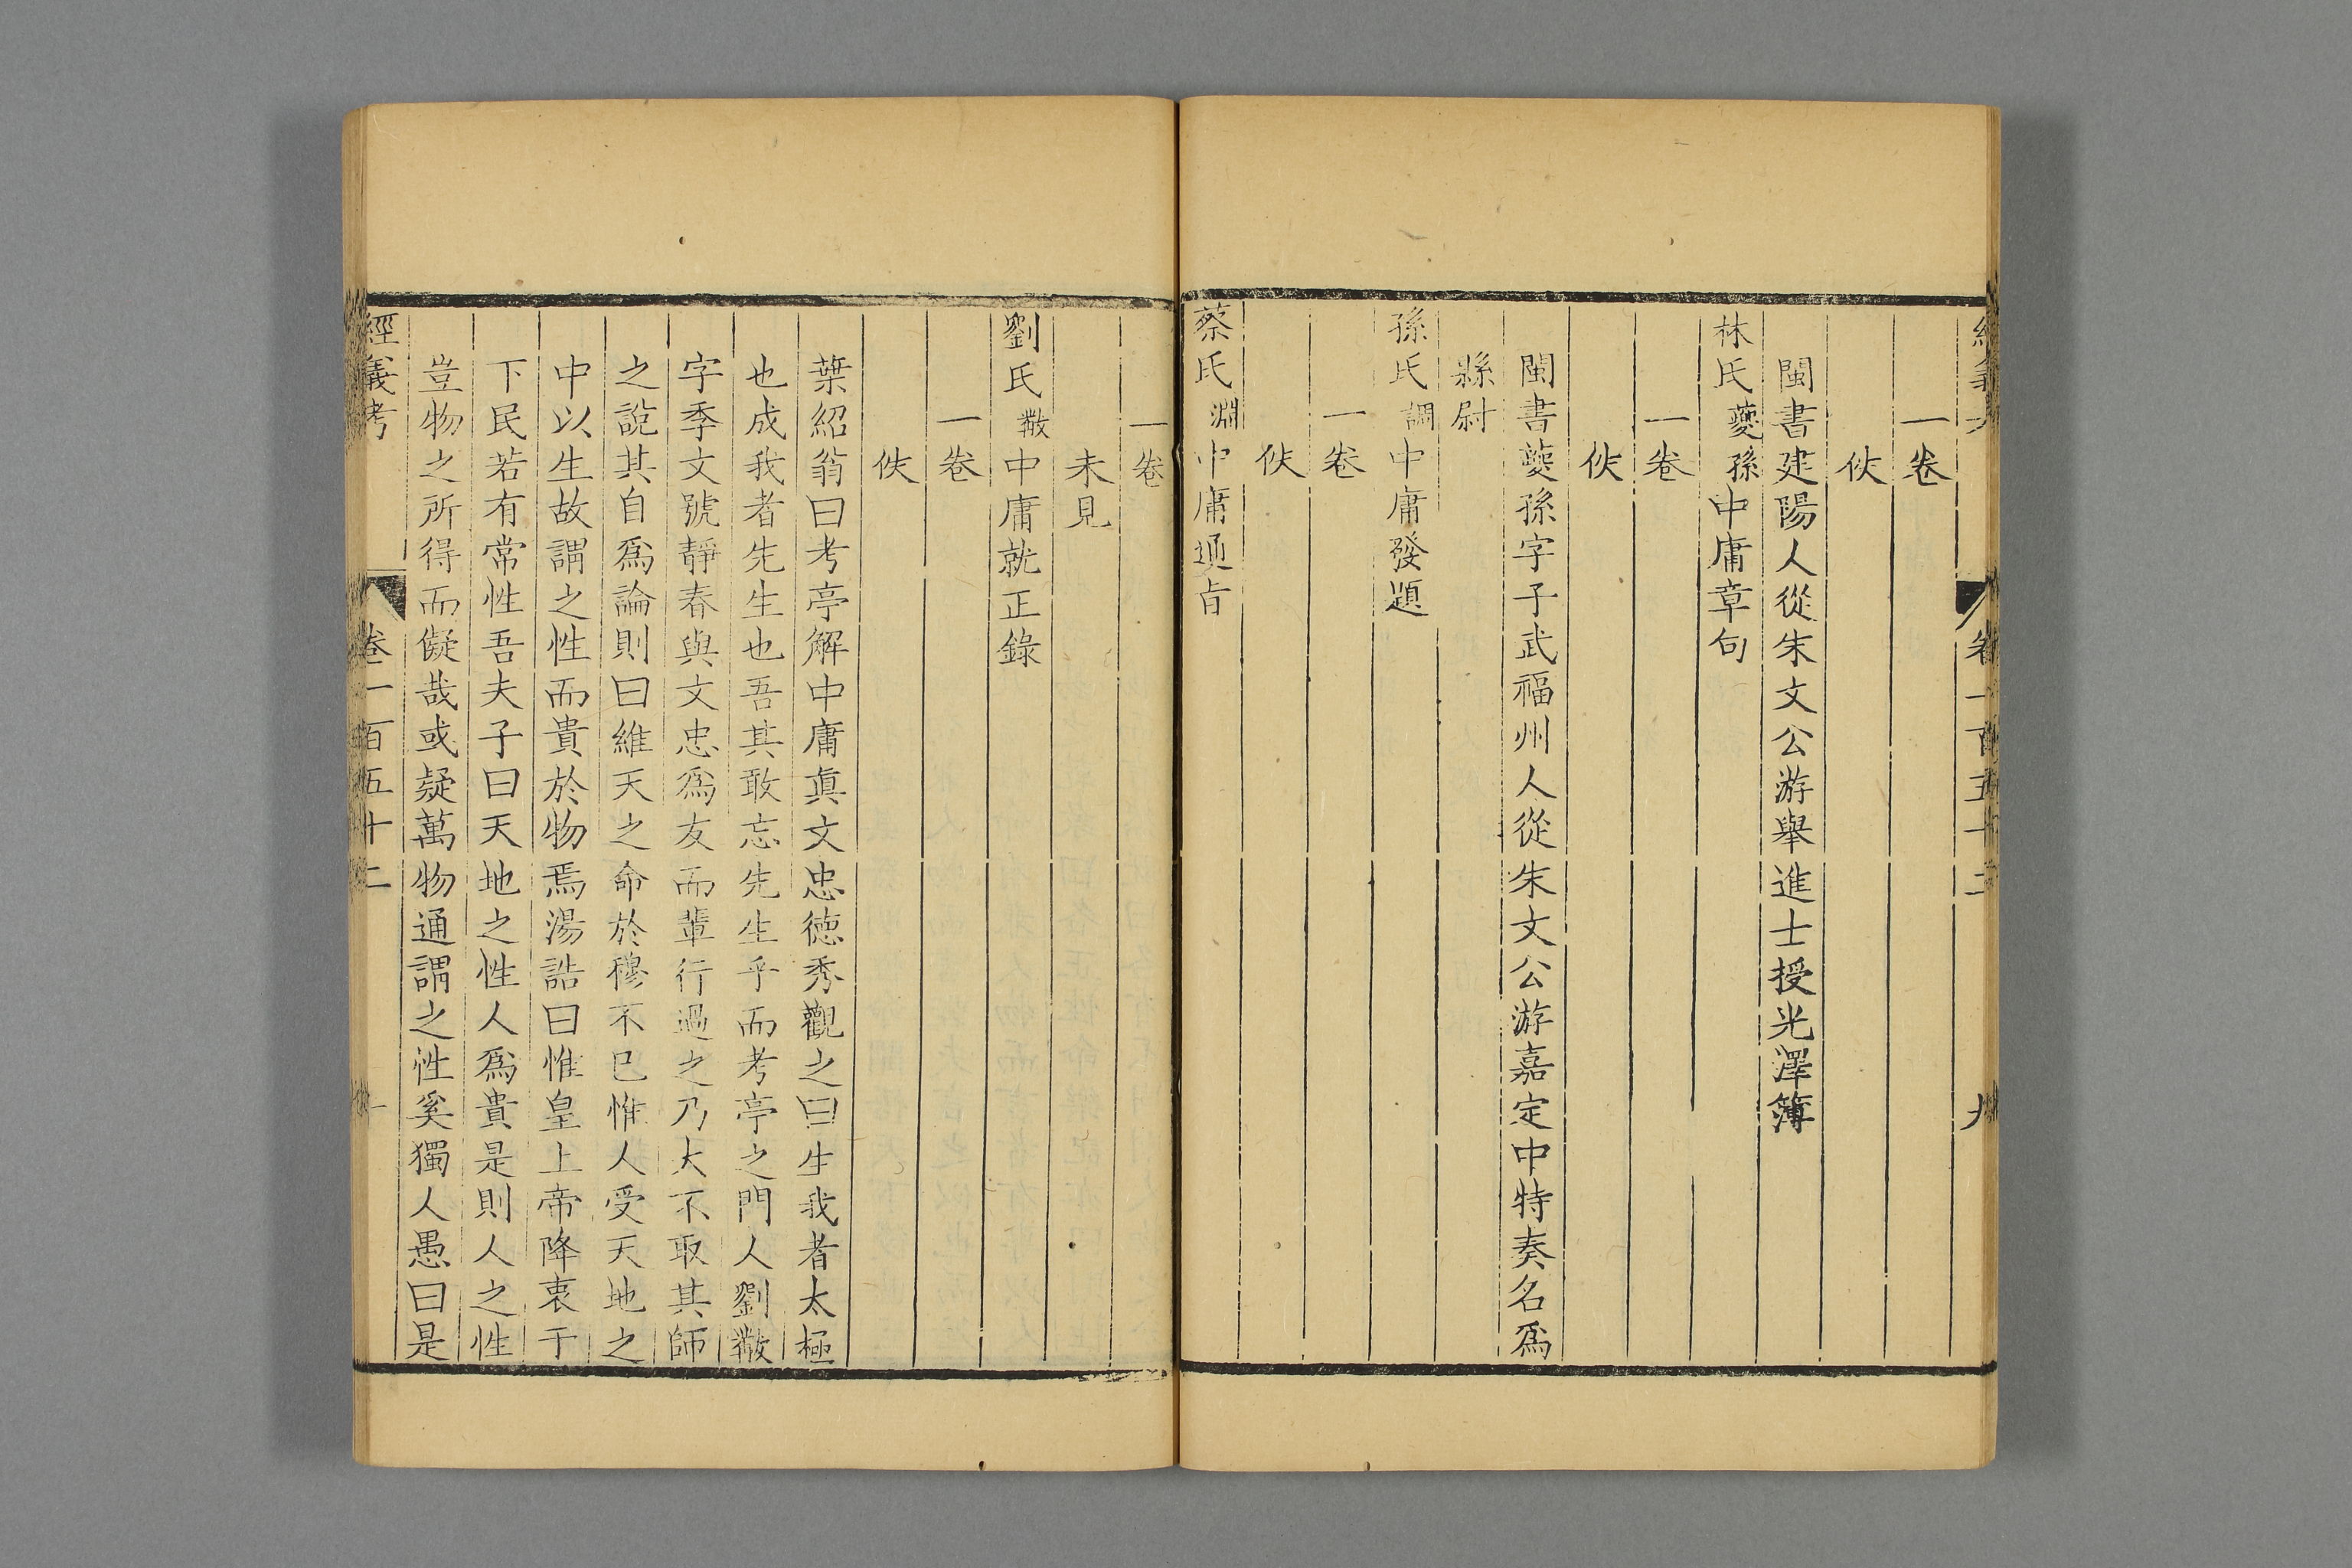 一卷
佚
閩書建陽人從朱文公游舉進士授光澤簿
林氏夔孫中庸章句
一卷
佚
閩書夔孫字子武福州人從朱文公游嘉定中特奏名爲
縣尉
孫氏調中庸發題
一卷
佚
蔡氏淵中庸通旨
一卷
未見
劉氏黻中庸就正錄
一卷
佚
葉紹翁曰考亭解中庸眞文忠德秀觀之曰生我者太極
也成我者先生也吾其敢忘先生乎而考亭之門人劉黻
字季文號靜春與文忠爲友而輩行過之乃大不取其師
之說其自爲論則曰維天之命於穆不已惟人受天地之
中以生故謂之性而貴於物焉湯誥曰惟皇上帝降衷于
下民若有常性吾夫子曰天地之性人爲貴是則人之性
豈物之所得而儗哉或疑萬物通謂之性奚獨人愚曰是
經義考
卷一百五十二